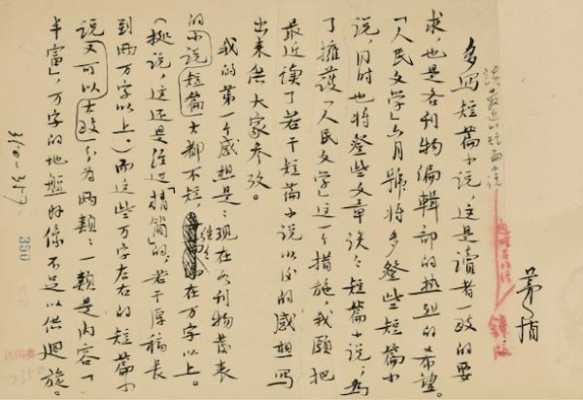 茅盾
谈最近的短篇小说
多写短篇小说,这是读者一致的要
求,也是各刊物编辑部的热烈的希望。
「人民文学」六月号将多登些短篇小
说,同时也将登些文章谈谈短篇小说,为
了拥护「人民文学」这一个措施,我願把
最近读了若干短篇小说以后的感想写
出来供大家参改。
我的第一个感想是:现在各刊物发表
的小说短篇大都不短,往往在万字以上。
(据说,这还是经过「精简」的,若干原稿长
到两万字以上。)而这些万字左右的短篇小
说又可以大致分为两类:一类是内容「
丰富」,万字的地盤好像不足以供迴旋。
350